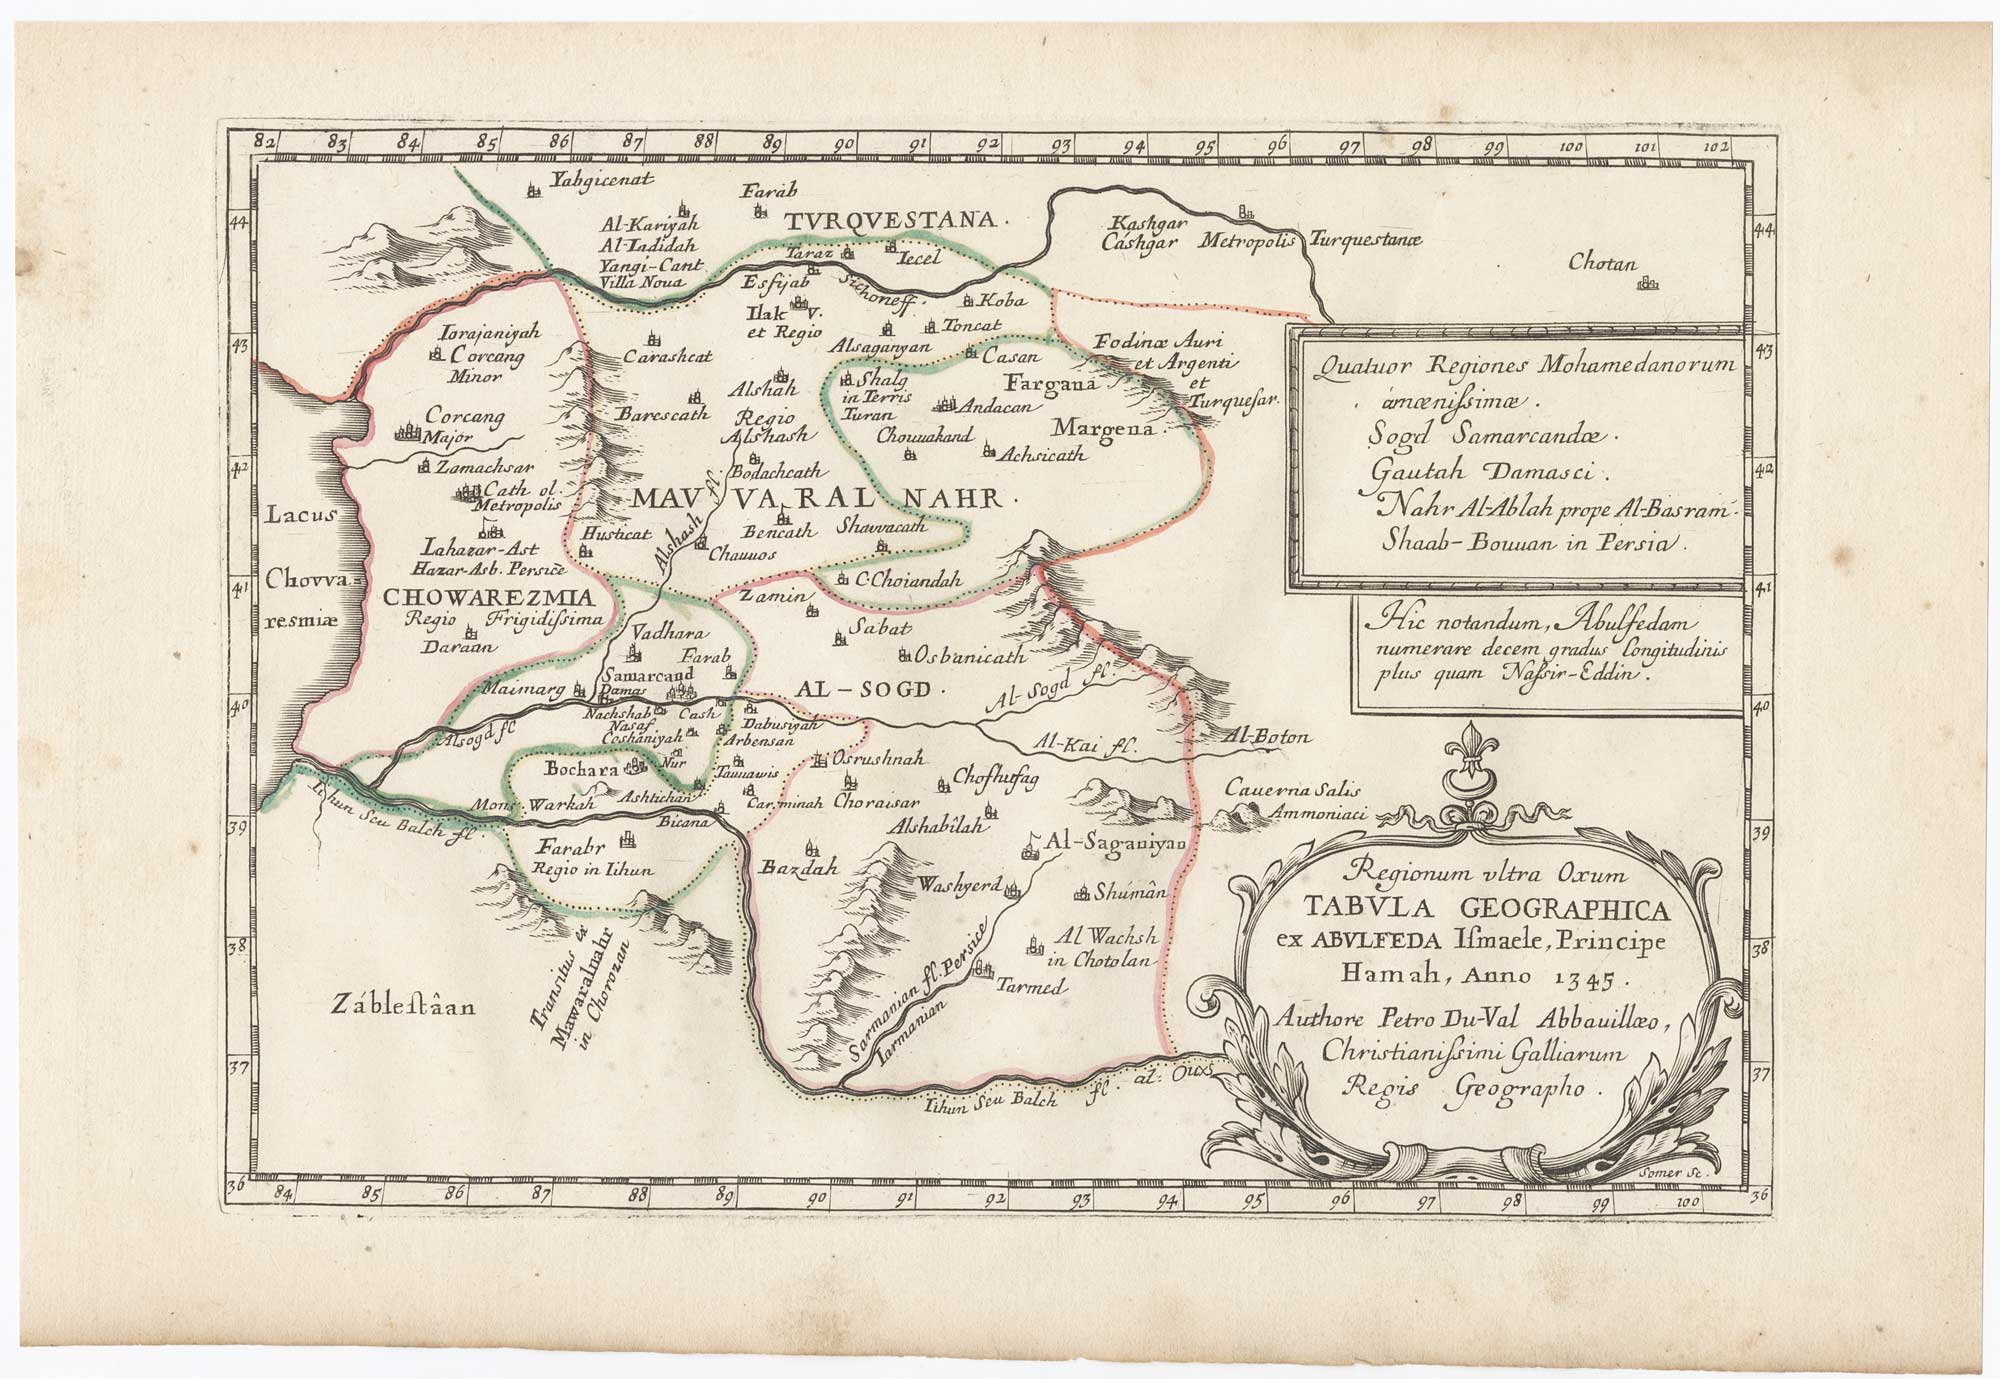 82 83 84 85 86 87 88 89 90 91 92 93 94 95 96 97 98 99 100 101 102
44
43
42
41
40
39
38
37
36
Yabgicenat
Farab
TVRQVESTANA.
Al-Kariyah
Al-Iadidah
Yangi-Cant
Villa Noua
Taraz
Iecel
Esfijab
Sichoneff.
Ilak V.
et Regio
Koba
Toncat
Alsaganyan
Casan
Kashgar
Cashgar Metropolis Turquestanæ
Chotan
Fodinæ Auri
et Argenti
et
Turquesar.
Iorajaniyah
Corcang
Minor
Carashcat
Alshah
Regio
Alshash
Barescath
Shalg
in Terris
Turan
Fargana
Andacan
Margena.
Chouuakand
Achsicath
Corcang
Major
Zamachsar
Cath ol.
Metropolis
Bodachcath
MAVVVARAL NAHR.
Lacus
Chovva=
resmiæ
Lahazar-Ast
Hazar-Asb. Persicè
Husticat
Alshash fl.
Bencath
Chauuos
Shavvacath
CHOWAREZMIA
Regio Frigidissima
Daraan
C. Choiandah
Zamin
Sabat
Osbanicath
Vadhara
Farab
Samarcand
Damas
Maimarg
AL-SOGD.
Al-Sogd fl.
Nachshab
Nasaf
Coshaniyah
Cash
Dabusiyah
Arbensan
Alsogd fl
Al-Kai fl.
Al-Boton
Nur
Bochara
Tauuawis
Osrushnah
Choflutfag
Mons Warkah
Ashtichan
Carminah
Choraisar
Cauerna Salis
Ammoniaci
Iihun Seu Balch fl.
Bicana
Alshabilah
Farabr
Regio in Iihun
Bazdah
Al-Saganiyan
Washyerd
Shúmân
Al Wachsh
in Chotolan
Tarmed
Sarmanian fl. Persice
Iarmanian
Transitus ex
Mawaralnahr
in Chorozan
Záblestâan
Iihun Seu Balch fl. al: Ouxs
Quatuor Regiones Mohamedanorum
amœnissimæ.
Sogd Samarcandæ.
Gautah Damasci.
Nahr Al-Ablah prope Al-Basram.
Shaab-Bouuan in Persia.
Hic notandum, Abulfedam
numerare decem gradus Longitudinis
plus quam Nassir-Eddin.
Regionum vltra Oxum
TABVLA GEOGRAPHICA
ex ABVLFEDA Ismaele, Principe
Hamah, Anno 1345.
Authore Petro Du-Val Abbauillæo,
Christianissimi Galliarum
Regis Geographo.
Somer Sc.
44
43
42
41
40
39
38
37
36
84 85 86 87 88 89 90 91 92 93 94 95 96 97 98 99 100